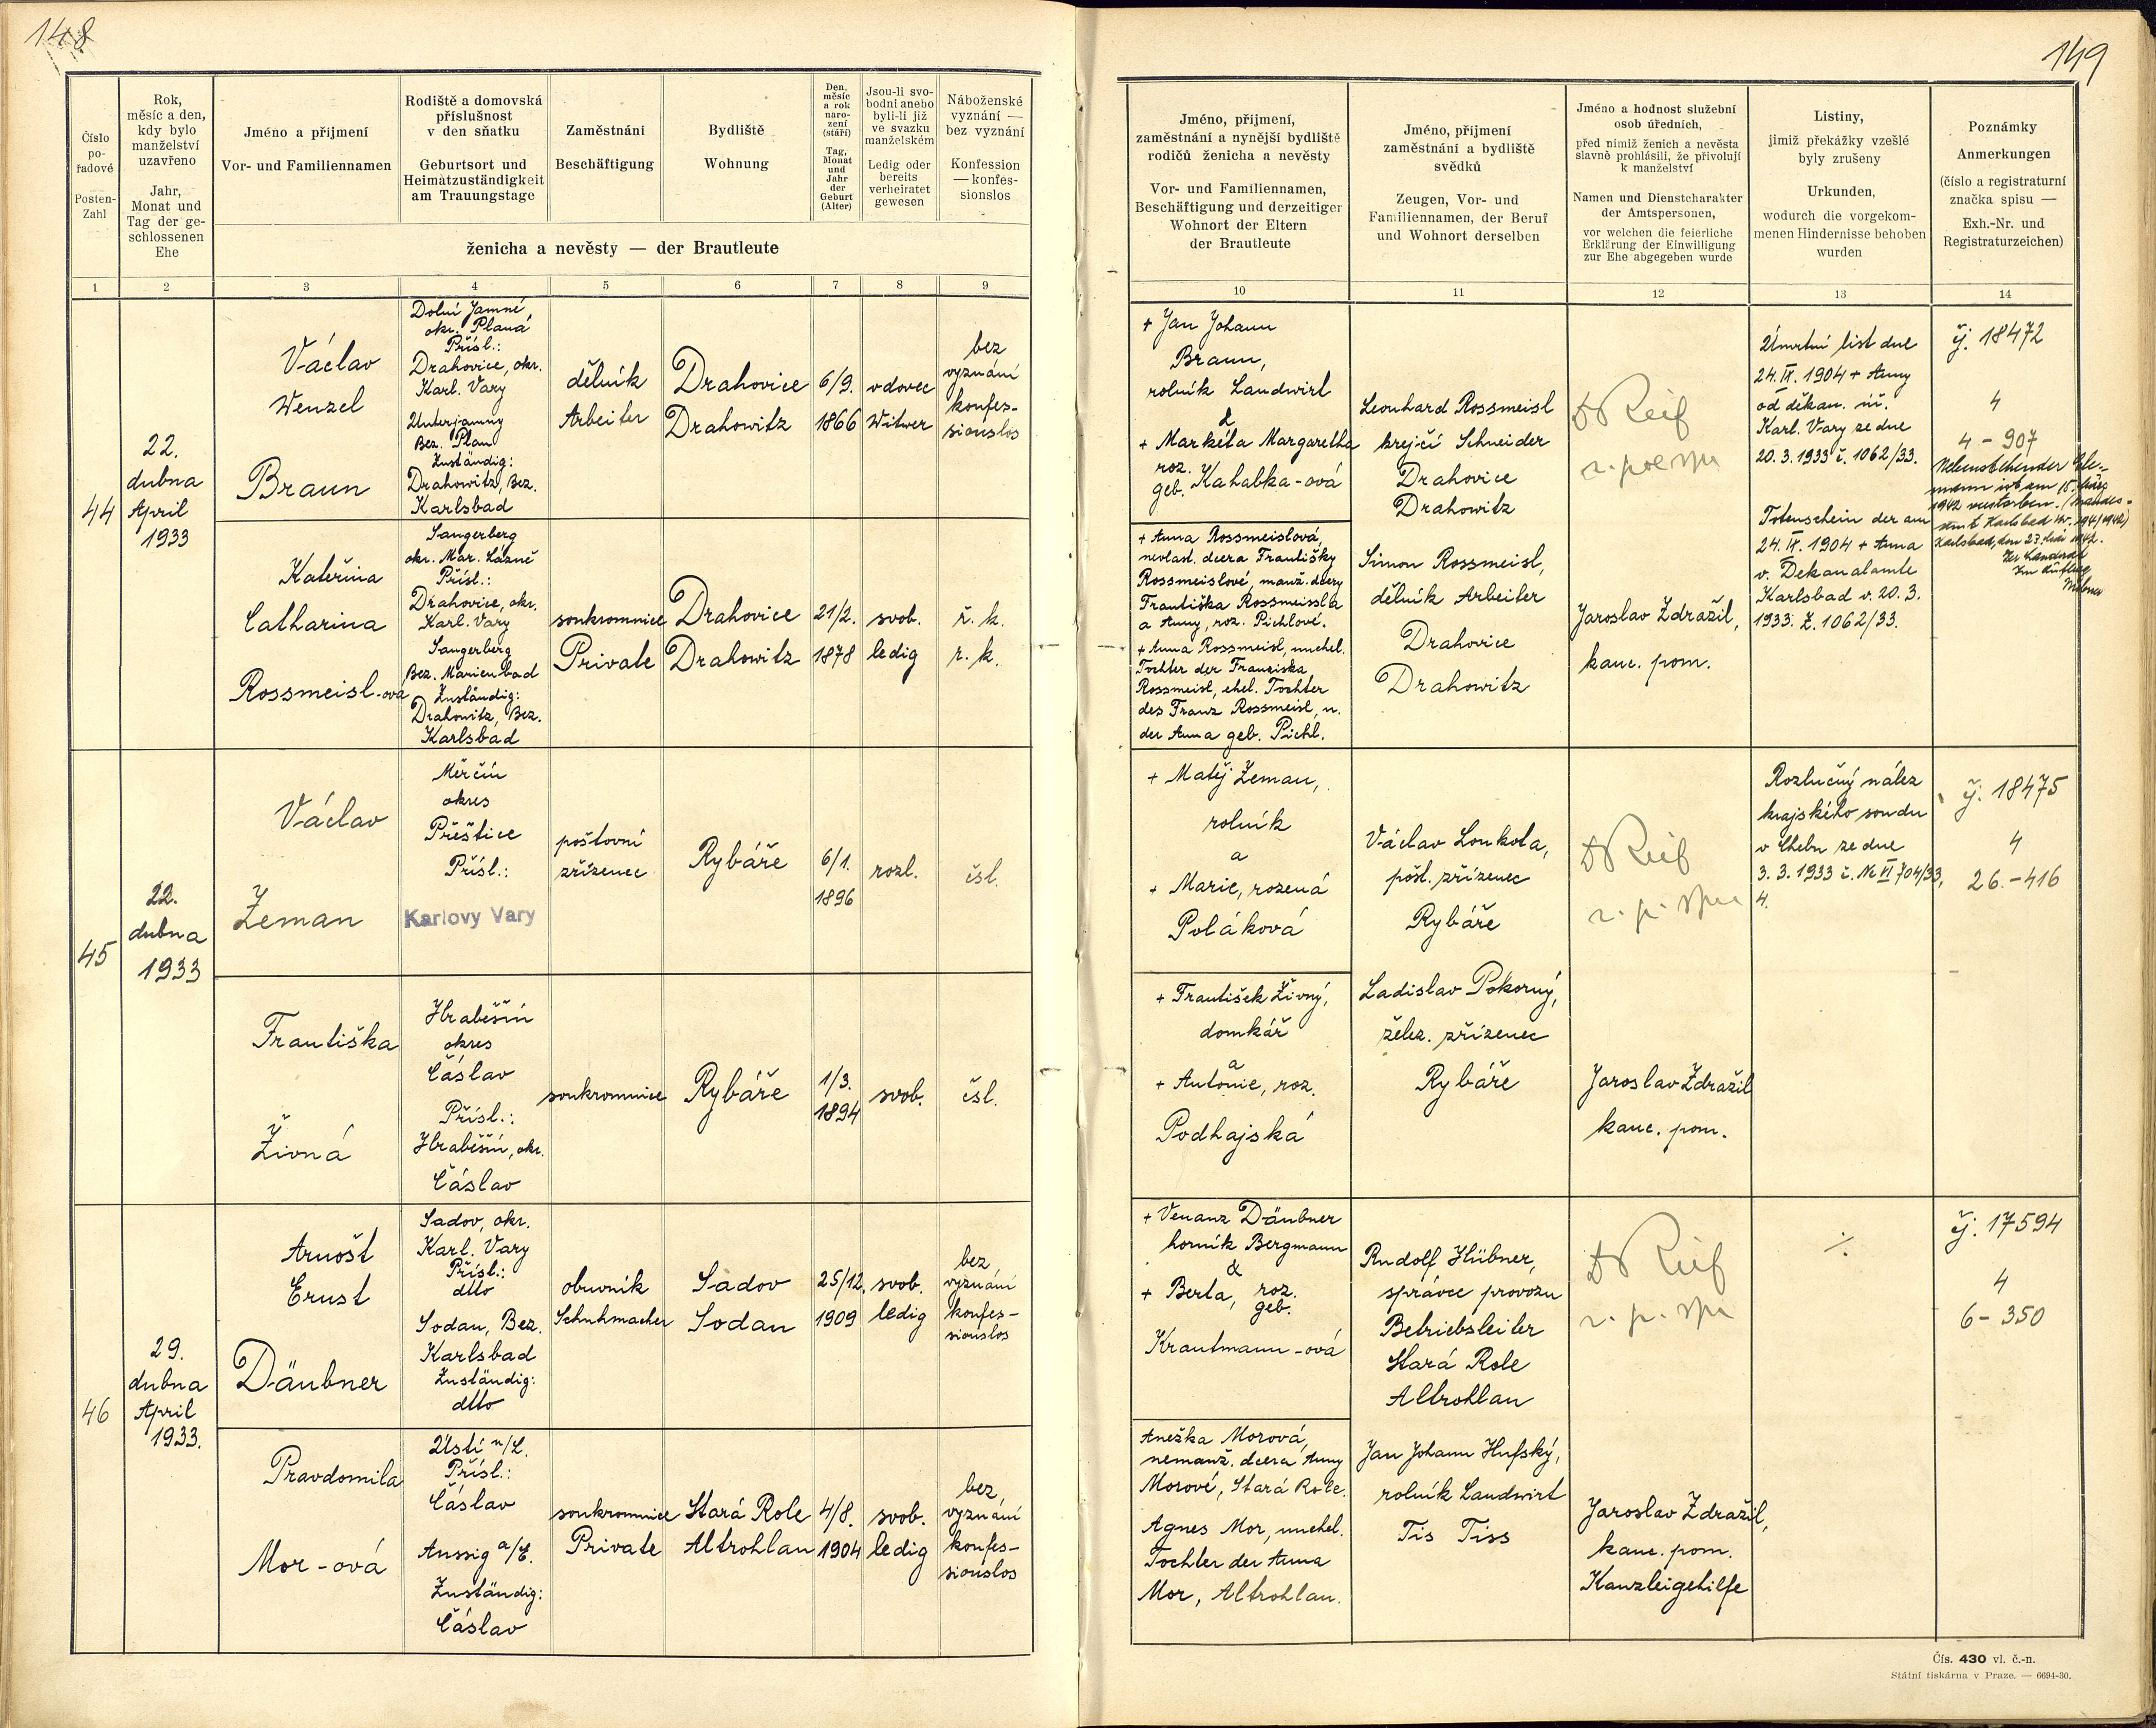 148
Číslo pořadové
Posten-Zahl
Rok, měsíc a den, kdy bylo manželství uzavřeno
Jahr, Monat und Tag der geschlossenen Ehe
Jméno a přijmení
Vor- und Familiennamen
Rodiště a domovská příslušnost v den sňatku
Geburtsort und Heimatzuständigkeit am Trauungstage
Zaměstnání
Beschäftigung
Bydliště
Wohnung
Den, měsíc a rok narození (stáří)
Tag, Monat und Jahr der Geburt (Alter)
Jsou-li svobodni anebo byli-li již ve svazku manželském
Ledig oder bereits verheiratet gewesen
Náboženské vyznání — bez vyznání
Konfession — konfessionslos
ženicha a nevěsty — der Brautleute
1 2 3 4 5 6 7 8 9
44
22.
dubna
April
1933
Václav
Wenzel
Braun
Dolní Jamné,
okr. Planá
Přísl.:
Drahovice, okr.
Karl. Vary
Unterjamny
Bez. Plan
Zuständig:
Drahowitz, Bez.
Karlsbad
dělník
Arbeiter
Drahovice
Drahowitz
6/9.
1866
vdovec
Witwer
bez
vyznání
konfes-
sionslos
Kateřina
Catharina
Rossmeisl-ová
Sangerberg
okr. Mar. Lázně
Přísl.:
Drahovice, okr.
Karl. Vary
Sangerberg
Bez. Marienbad
Zuständig:
Drahowitz, Bez.
Karlsbad
soukromnice
Private
Drahovice
Drahowitz
21/2.
1878
svob.
ledig
ř. k.
r. k.
45
22.
dubna
1933
Václav
Zeman
Měrčín
okres
Přeštice
Přísl.:
Karlovy Vary
poštovní
zřízenec
Rybáře
6/1.
1896
rozl.
čsl.
Františka
Živná
Hraběšín
okres
Čáslav
Přísl.:
Hraběšín, okr.
Čáslav
soukromnice
Rybáře
1/3.
1894
svob.
čsl.
46
29.
dubna
April
1933.
Arnošt
Ernst
Däubner
Sadov, okr.
Karl. Vary
Přísl.:
dtto
Sodau, Bez.
Karlsbad
Zuständig:
dtto
obuvník
Schuhmacher
Sadov
Sodau
25/12.
1909
svob.
ledig
bez
vyznání
konfes-
sionslos
Pravdomila
Mor-ová
Ústí n/L.
Přísl.:
Čáslav
Aussig a/E.
Zuständig:
Čáslav
soukromnice
Private
Stará Role
Altrohlau
4/8.
1904
svob.
ledig
bez
vyznání
konfes-
sionslos
149
Jméno, přijmení, zaměstnání a nynější bydliště rodičů ženicha a nevěsty
Vor- und Familiennamen, Beschäftigung und derzeitiger Wohnort der Eltern der Brautleute
Jméno, přijmení zaměstnání a bydliště svědků
Zeugen, Vor- und Familiennamen, der Beruf und Wohnort derselben
Jméno a hodnost služební osob úředních,
před nimiž ženich a nevěsta slavně prohlásili, že přivolují k manželství
Namen und Dienstcharakter der Amtspersonen,
vor welchen die feierliche Erklärung der Einwilligung zur Ehe abgegeben wurde
Listiny,
jimiž překážky vzešlé byly zrušeny
Urkunden,
wodurch die vorgekommenen Hindernisse behoben wurden
Poznámky
Anmerkungen
(číslo a registraturní značka spisu —
Exh.-Nr. und Registraturzeichen)
10 11 12 13 14
+ Jan Johann
Braun,
rolník Landwirt
&
+ Markéta Margaretha
roz.
geb. Kahabka-ová
Leonhard Rossmeisl
krejčí Schneider
Drahovice
Drahowitz
Dr Reif
Útmrtní list dne
24. IX. 1904 + Anny
od děkan. úř.
Karl. Vary ze dne
20. 3. 1933 č. 1062/33.
Totenschein der am
24. IX. 1904 + Anna
v. Dekanalamte
Karlsbad v. 20. 3.
1933. Z. 1062/33.
čj. 18472
4
4 - 907
Nebenstehender Ehe-
mann ist am 15. März
1942 verstorben. (Standes-
amt Karlsbad Nr. 194/1942)
Karlsbad, den 27. 1942.
Der Landrat
+ Anna Rossmeislová,
nevlast. dcera Františky
Rossmeislové, manž. dcery
Františka Rossmeissla
a Anny, roz. Pichlové.
+ Anna Rossmeisl, unehel.
Tochter der Franziska
Rossmeisl, ehel. Tochter
des Franz Rossmeisl, u.
der Anna geb. Pichl.
Simon Rossmeisl,
dělník Arbeiter
Drahovice
Drahowitz
Jaroslav Zdražil,
kanc. pom.
+ Matěj Zeman,
rolník
a
+ Marie, rozená
Poláková
Václav Loukota,
pošt. zřízenec
Rybáře
Dr Reif
Rozlučný nález
krajského soudu
v Chebu ze dne
3. 3. 1933 č. Nc VI 704/33,
4.
čj. 18475
4
26.-416
+ František Živný,
domkář
a
+ Antonie, roz.
Podhajská
Ladislav Pokorný,
želez. zřízenec
Rybáře
Jaroslav Zdražil
kanc. pom.
+ Venanz Däubner
horník Bergmann
&
+ Berta, roz.
geb.
Krautmann-ová
Rudolf Hübner,
správce provozu
Betriebsleiter
Stará Role
Altrohlau
Dr Reif
÷
čj. 17594
4
6 - 350
Anežka Morová,
nemanž. dcera Anny
Morové, Stará Role.
Agnes Mor, unehel.
Tochter der Anna
Mor, Altrohlau.
Jan Johann Hufský,
rolník Landwirt
Tis Tiss
Jaroslav Zdražil,
kanc. pom.
Kanzleigehilfe
Čís. 430 vl. č.-n.
Státní tiskárna v Praze. — 6694-30.